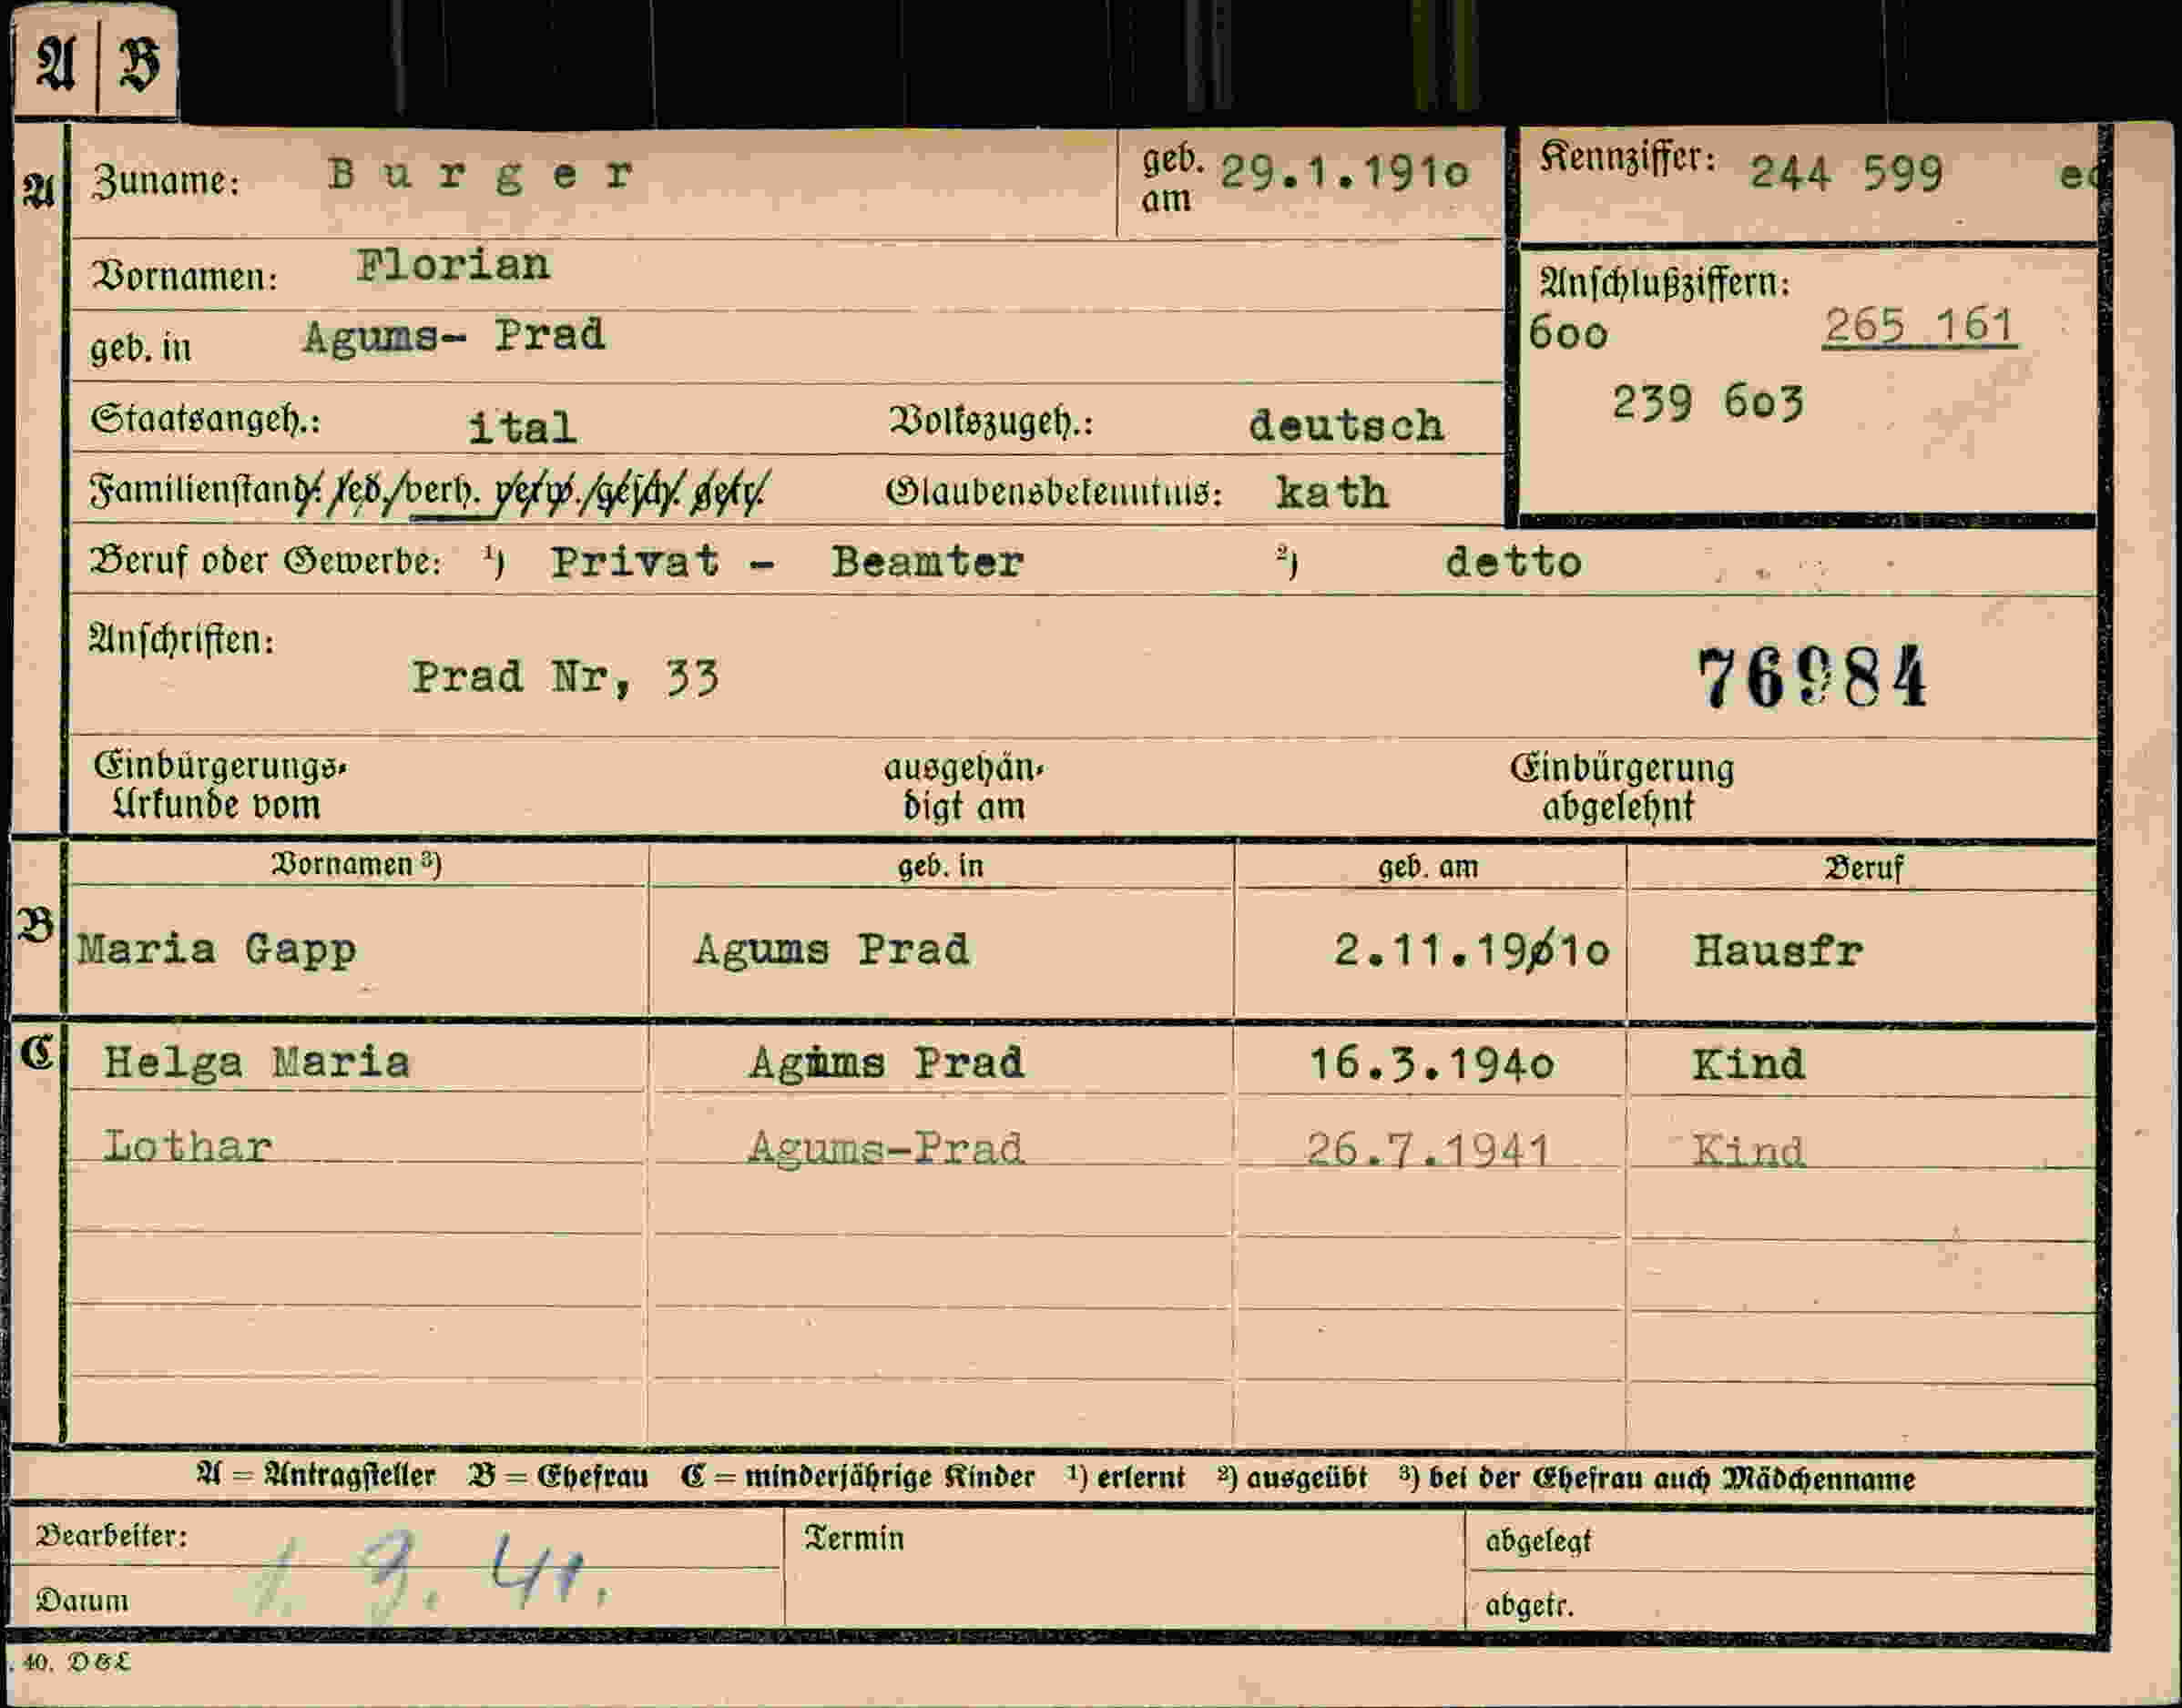 A B
A Zuname: Burger geb. am 29.1.191o Kennziffer: 244 599
Vornamen: Florian
Anschlußziffern:
geb. in Agums- Prad 6oo 265 161
239 6o3
Staatsangeh.: ital Volkszugeh.: deutsch
Familienstand: led./verh. verw./gesch. getr. Glaubensbekenntnis: kath
Beruf oder Gewerbe: ¹) Privat - Beamter ²) detto
Anschriften:
Prad Nr, 33 76984
Einbürgerungs- ausgehän- Einbürgerung
Urkunde vom digt am abgelehnt
Vornamen ³) geb. in geb. am Beruf
B Maria Gapp Agums Prad 2.11.19010 Hausfr
C Helga Maria Agums Prad 16.3.194o Kind
Lothar Agums-Prad 26.7.1941 Kind
A = Antragsteller B = Ehefrau C = minderjährige Kinder ¹) erlernt ²) ausgeübt ³) bei der Ehefrau auch Mädchenname
Bearbeiter: Termin abgelegt
Datum 1. 9. 41. abgetr.
40. D&L